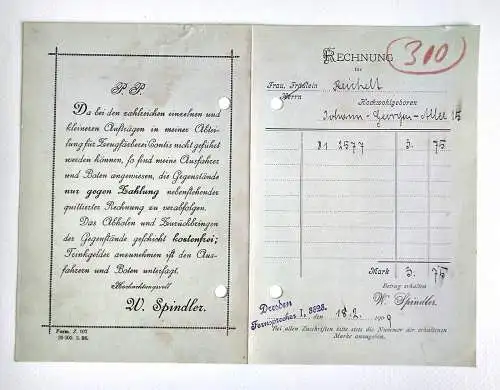 P. P.
Da bei den zahlreichen einzelnen und
kleineren Aufträgen in meiner Abtei-
lung für Zeugfärberei Contis nicht geführt
werden können, so sind meine Ausfahrer
und Boten angewiesen, die Gegenstände
nur gegen Zahlung nebenstehender
quittierter Rechnung zu verabfolgen.
Das Abholen und Zurückbringen
der Gegenstände geschieht kostenfrei;
Trinkgelder anzunehmen ist den Aus-
fahrern und Boten untersagt.
Hochachtungsvoll
W. Spindler.
Form. Z. 107.
RECHNUNG
für
310
Frau, Fräulein Reichelt
Herrn
Hochwohlgeboren
Johann-Georgen-Allee 15
81 2577 3. 75
Mark 3. 75
Betrag erhalten
W. Spindler.
Dresden
Fernsprecher I. 3528.
, den 18. 2. 1909
Bei allen Zuschriften bitte stets die Nummer der erhaltenen
Marke anzugeben.